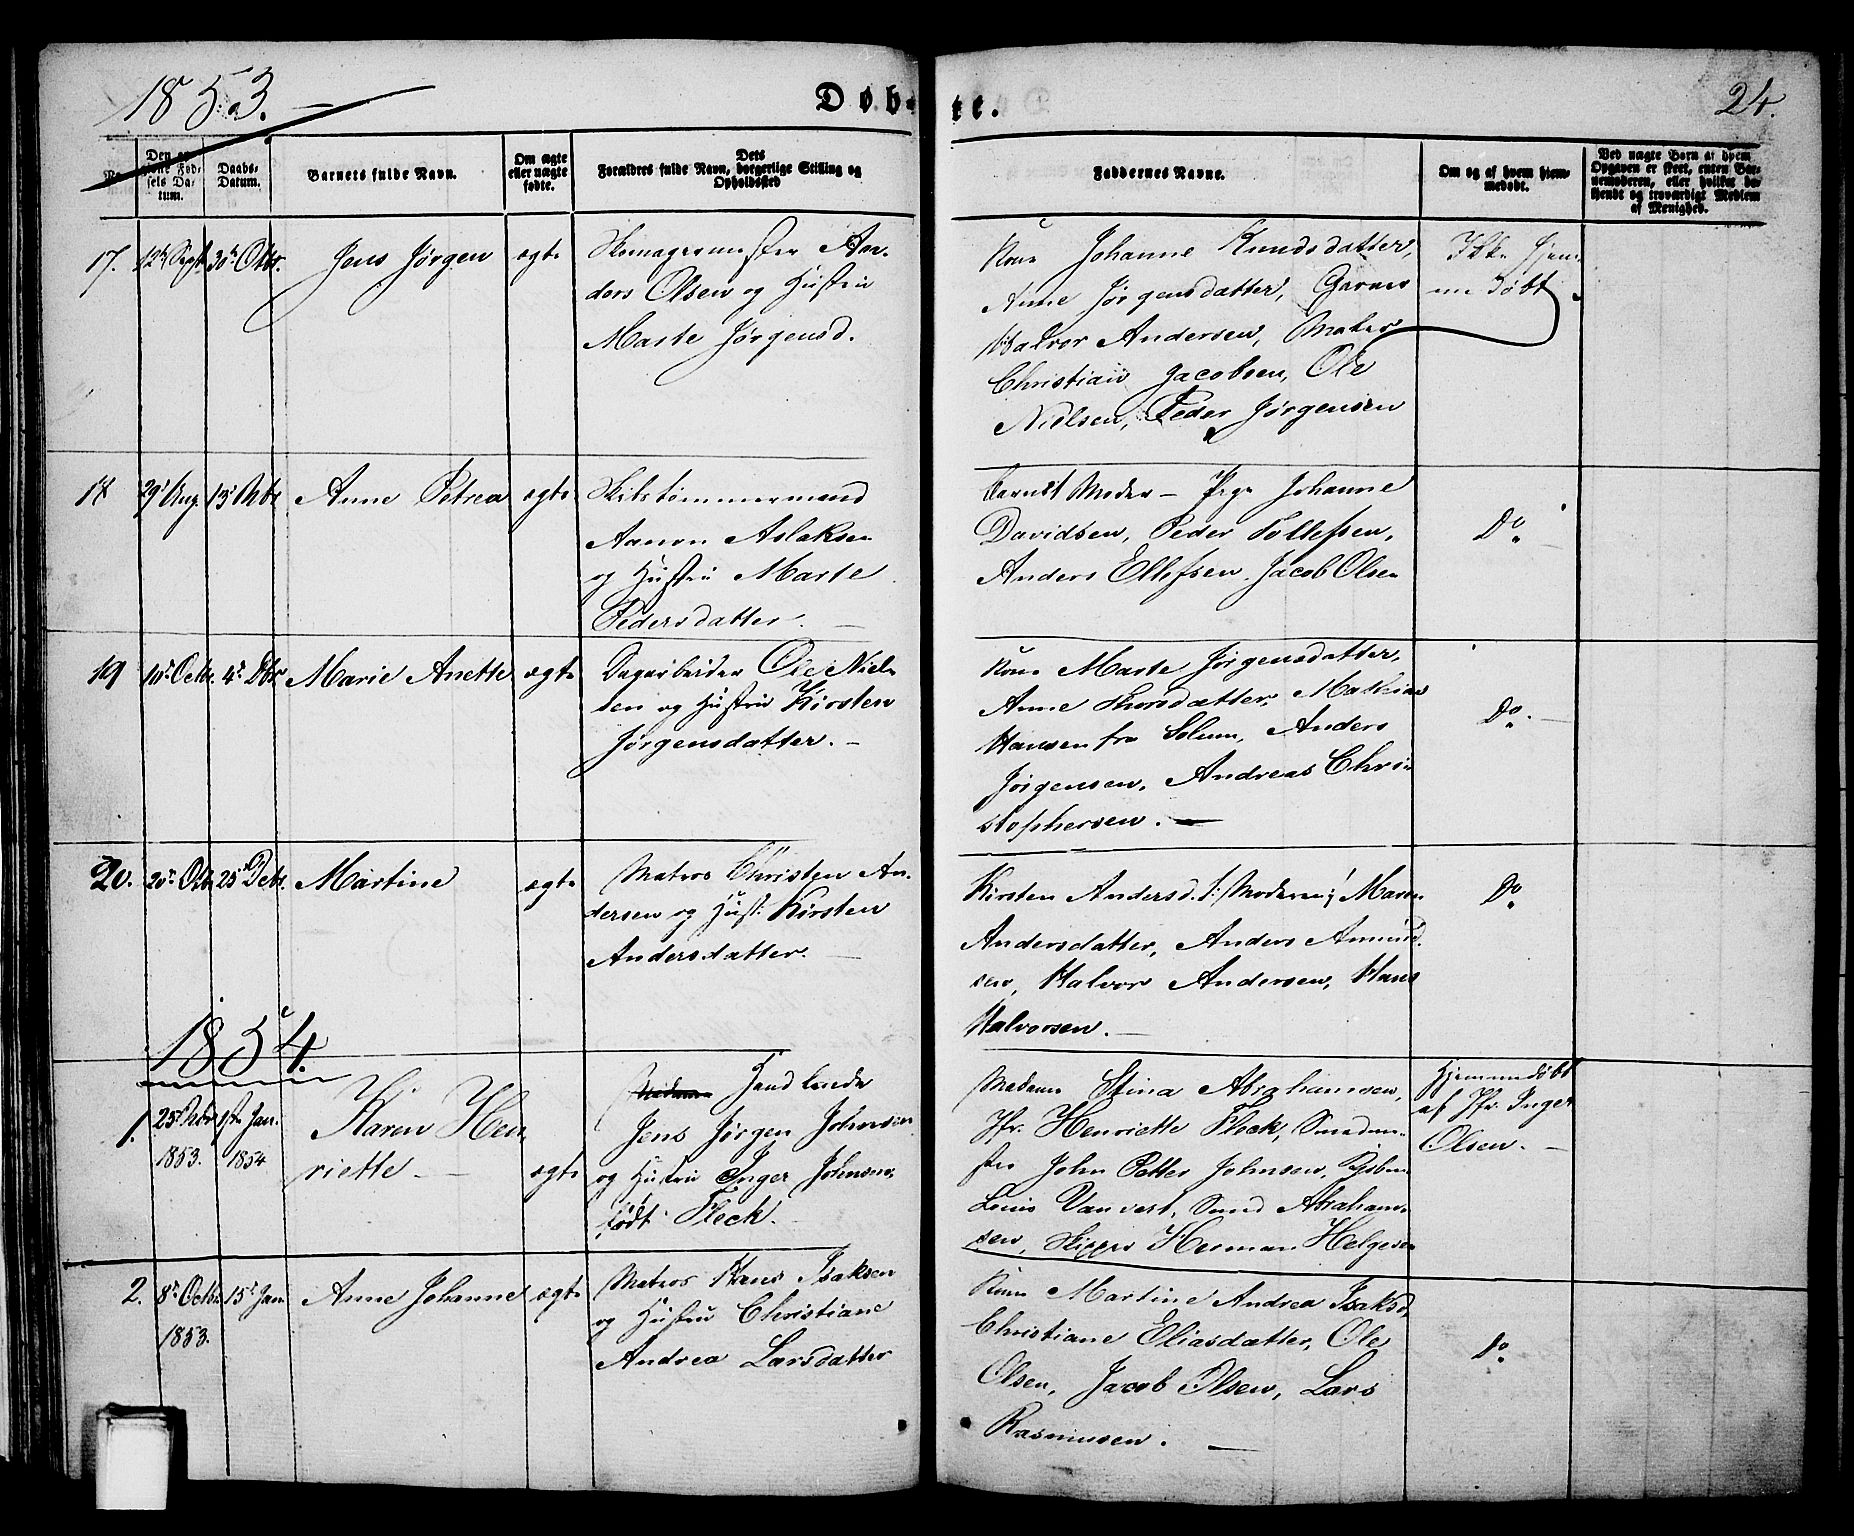 1853.
Døb-
te.
24.
No.
Den op-
givne Fød-
sels Da-
tum.
Daabs-
Datum.
Barnets fulde Navn.
Om ægte
eller uægte
fødte.
Dets
Forældres fulde Navn, borgerlige Stilling og
Opholdssted
Faddernes Navne.
Om og af hvem hjem-
medøbt.
Ved uægte Børn af hvem
Opgaven er skeet, enten Bar-
nemoderen, eller hvilket be-
kjendt og troværdigt Medlem
af Menighed.
17.
12te Sept.
30te Octbr.
Jens Jørgen
ægte
Skomagermester An-
ders Olsen og Hustru
Marte Jørgensd.
Kone Johanne Knudsdatter,
Anne Jørgensdatter,
Halvor Andersen,
Christian Jacobsen, Ole
Nielsen, Peder Jørgensen
Ikke hjem-
medøbt
18
29 Aug.
13 Nbr
Anne Petrea
ægte
Skibstømmermand
Aanon Aslaksen
og Hustru Marte
Pedersdatter.
Barnets Moder - Pige Johanne
Davidsen, Peder Tollefsen,
Anders Ellefsen, Jacob Olsen
Do
19
10de Octbr.
4de Dbr
Marie Anette
ægte
Dagarbeider Ole Niel-
sen og Hustru Kirsten
Jørgensdatter. -
Kone Marte Jørgensdatter,
Anne Thorsdatter, Mathias
Hansen fra Solum, Anders
Jørgensen, Andreas Chri-
stophersen. -
Do. -
20.
20de Octb
25de Debr.
Martine
ægte
Matros Christen An-
dersen og Hust: Kirsten
Andersdatter. -
Kirsten Andersd. /: Moderen :/ Maren
Andersdatter, Anders Amund-
sen, Halvor Andersen, Hans
Halvorsen. -
Do
1854.
1.
25de Nbr
1853.
1ste Jan.
1854
Karen Hen-
riette. -
ægte
Handlende
Jens Jørgen Johnsen
og Hustru Inger Johnsen,
født Fleck. -
Madame Stina Abrahamsen,
Jfr. Henriette Fleck,
John Petter Johnsen,
Abraham-
sen, Skipper Herman Helgesen
Hjemmedøbt
af Jfr. Inger
Olsen. -
2.
8de Octbr.
1853.
15de Jan
Anne Johanne
ægte
Matros Hans Isaksen
og Hustru Christiane
Andrea Larsdatter
Kone Martine Andrea Isaksd,
Christiane Eliasdatter, Ole
Olsen, Jacob Olsen, Lars
Rasmussen. -
Do